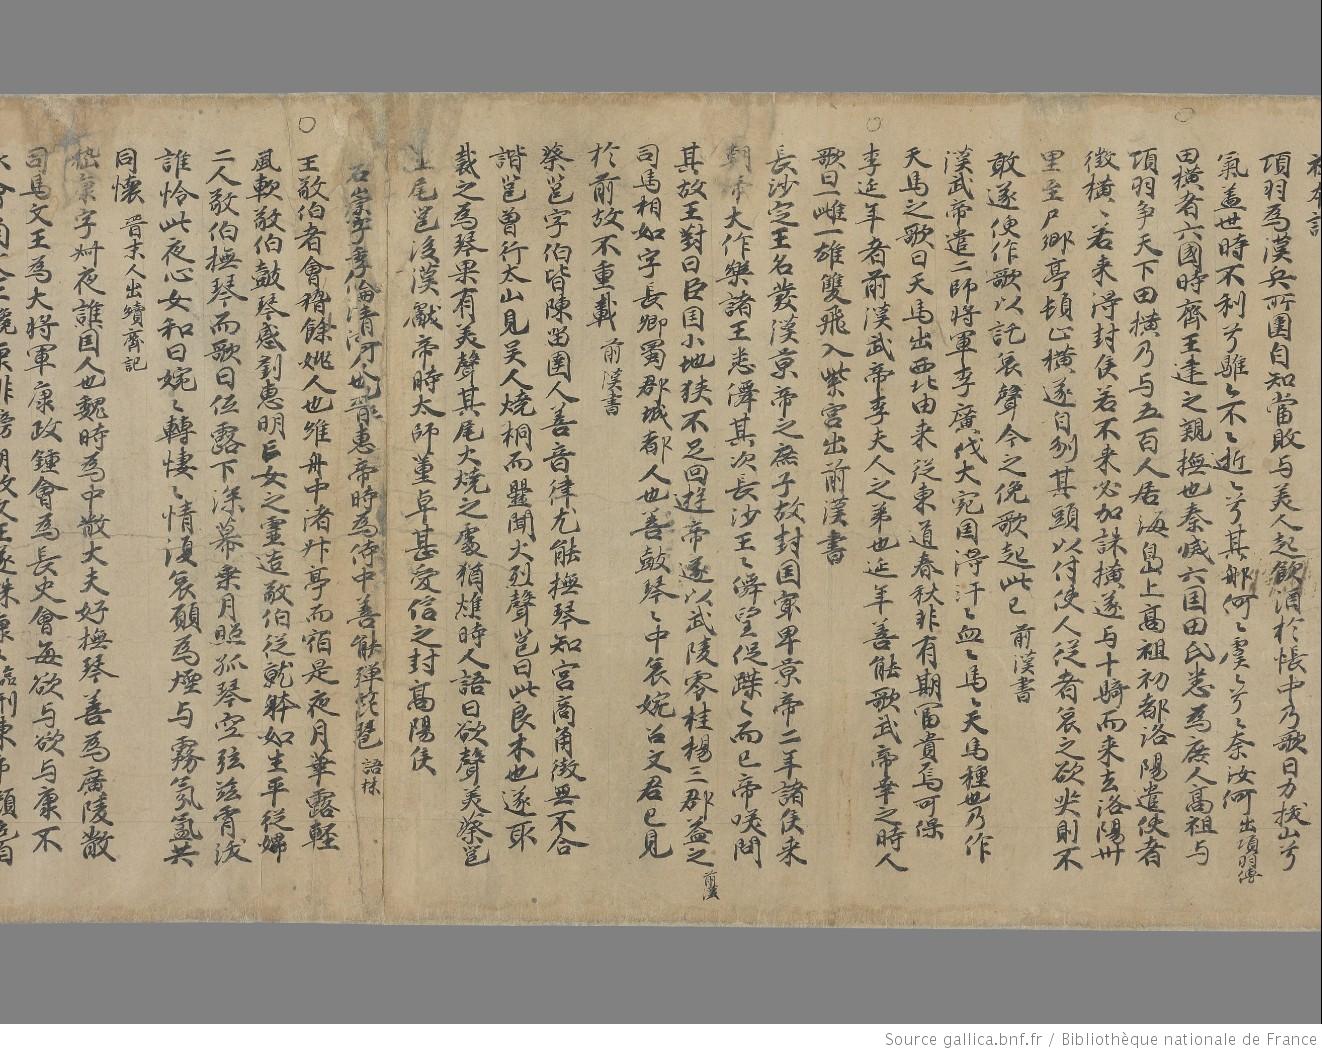 項羽為漢兵所圍自知當敗与美人起飲泪於帳中乃歌曰力拔山兮
氣盖世時不利兮騅〻不〻逝〻兮其那何〻虞〻兮〻奈汝何 出項羽傳
田橫者六國時齊王建之親撫也秦滅六国田氏悉為庶人髙祖与
項羽争天下田橫乃与五百人居海島上髙祖初都洛陽遣使者
徴橫〻若来得封侯若不来必加誅橫遂与十騎而来去洛陽卅
里至尸鄉亭頓止橫遂自刎其頭以付使人従者哀之欲哭則不
敢遂使作歌以託哀聲今之俛歌起此已 前漢書
漢武帝遣二師將軍李廣伐大宛国得汗〻血〻馬〻天馬種也乃作
天馬之歌曰天馬出西北由来従東道春秋非有期冨貴焉可保
李延年者前漢武帝李夫人之弟也延年善能歌武帝幸之時人
歌曰一雌一雄雙飛入紫宮出前漢書
長沙定王名發漢京帝之庶子故封国軍卑京帝二年諸侯来
朝帝大作樂諸王悉儛其次長沙王〻儛望促踈〻而已帝唉問
其故王對曰臣国小地狭不足回遊帝遂以武陵零桂楊三郡益之 前漢
司馬相如字長卿蜀郡城都人也善皷琴〻中哀婉台文君已見
於前故不重載 前漢書
蔡邕字伯皆陳留圉人善音律尤能撫琴知宮商角徴無不合
諧邕曽行太山見吴人燒桐而爨聞火烈聲邕曰此良木也遂取
裁之為琴果有美聲其尾火燒之處猶燋時人語曰欲聲美蔡邕
尾邕後漢獻帝時太師董卓甚愛信之封髙陽侯
石崇字季倫清河人也晋惠帝時為侍中善能弾琵琶 語林
王敬伯者會稽餘姚人也維舟中渚舛亭而宿是夜月華露輕
風軟敬伯皷琴感劉惠明亡女之霊造敬伯従就躰如生平従婦
二人敬伯撫琴而歌曰伍露下深幕柰月照孤琴空弦益宵浅
誰恰此夜心女和曰婉〻轉悽〻情復哀願為煙与霧氛氳共
同懷 晋末人出續齊記
嵇康字尗夜譙国人也魏時為中散大夫好撫琴善為廣陵散
司馬文王為大将軍康政鍾會為長史會每欲与欲与康不